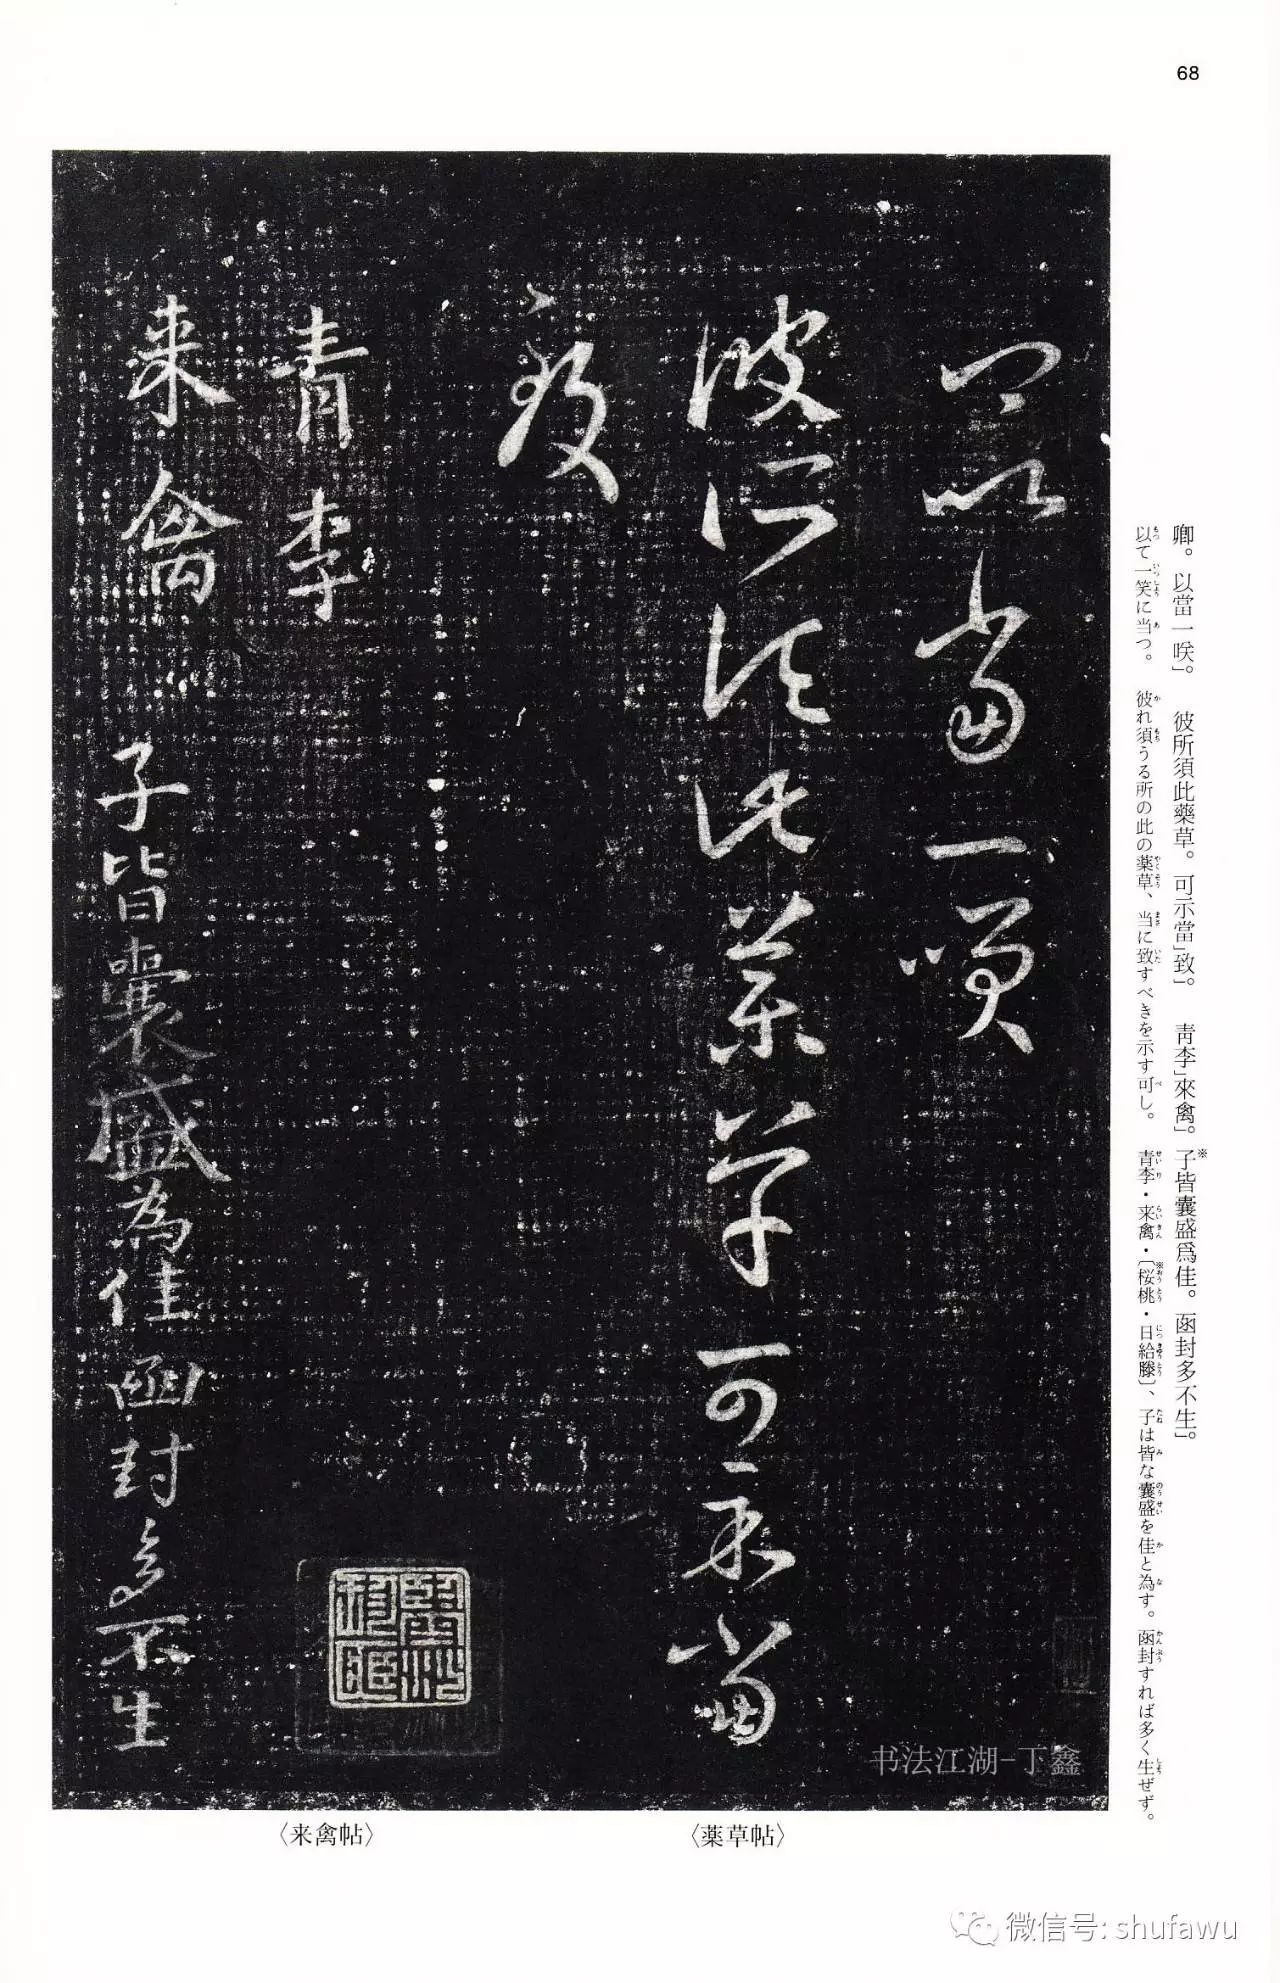 68
卿。以當一咲」。　彼所須此藥草。可示當」致」。　靑李」來禽」。※子皆囊盛爲佳。函封多不生」。
以て一笑に当つ。　彼れ須うる所の此の薬草、当に致すべきを示す可し。　青李・来禽・〔※桜桃・日給滕〕、子は皆な囊盛を佳と為す。函封すれば多く生ぜず。
卿以當一咲
彼所須此藥草可示當
致
青李
来禽
子皆囊盛為佳函封多不生
书法江湖-丁鑫
〈薬草帖〉
〈来禽帖〉
微信号: shufawu